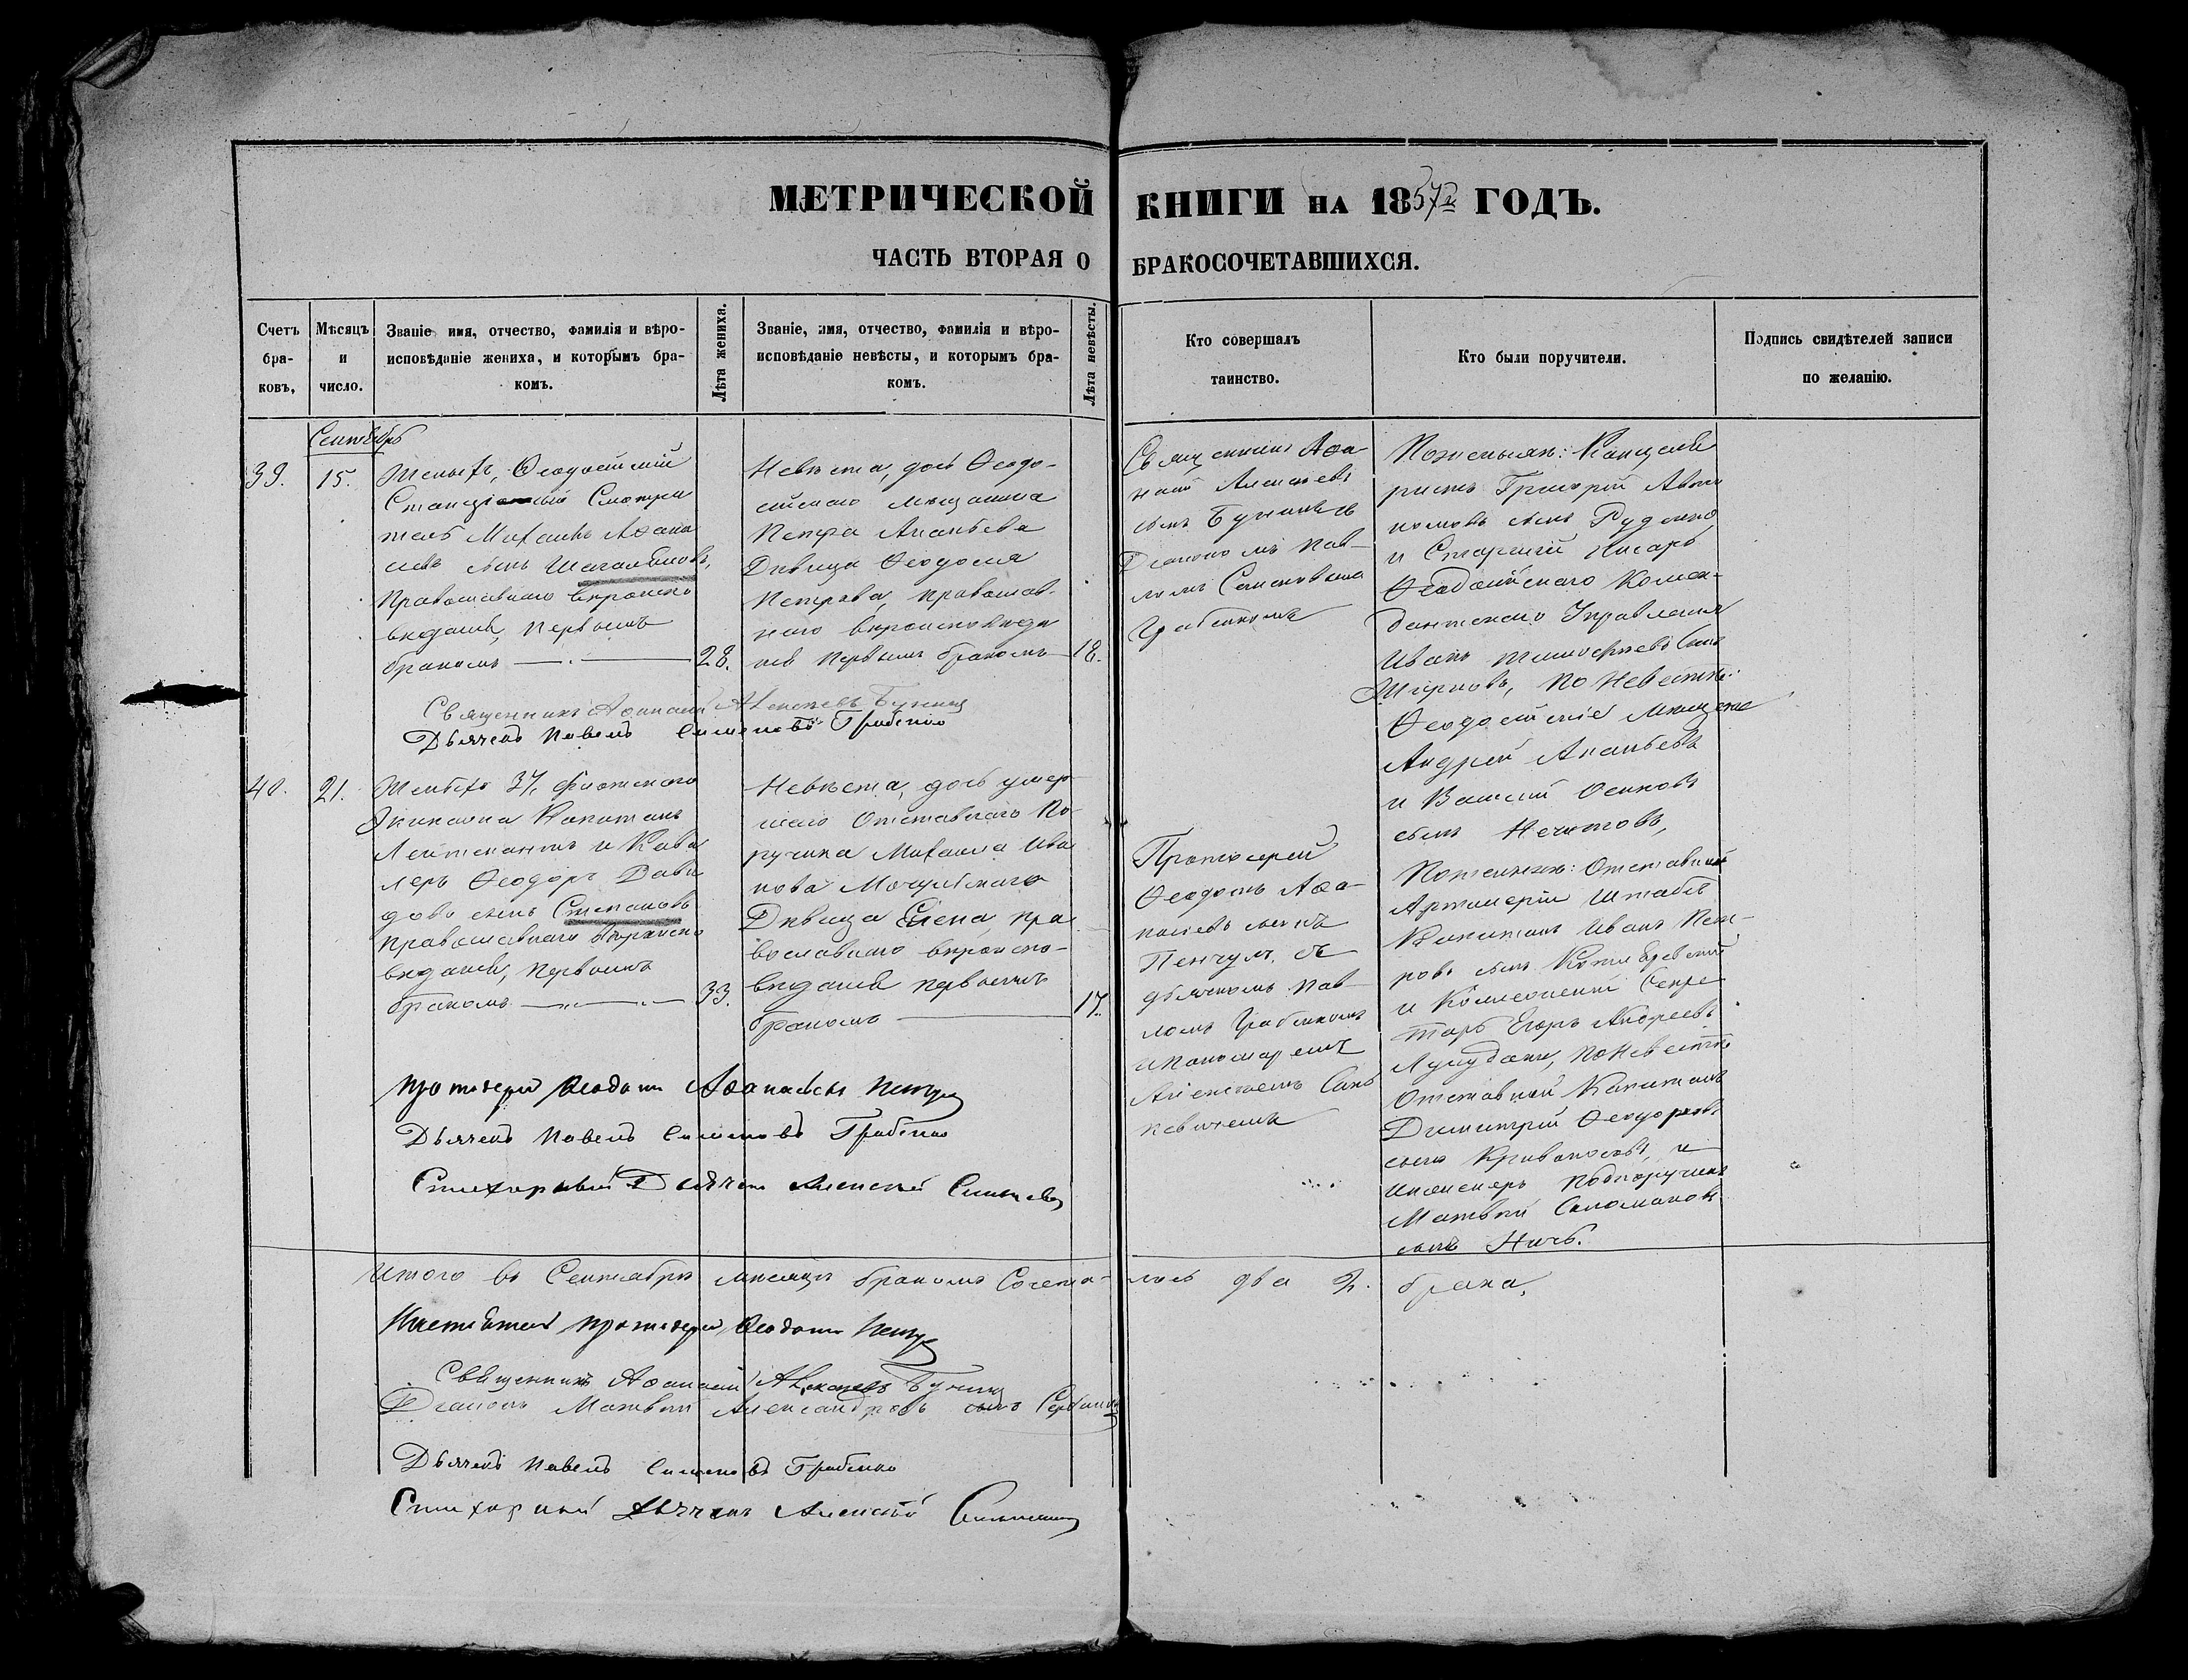 МЕТРИЧЕСКОЙ КНИГИ НА 1857й ГОДЪ.
ЧАСТЬ ВТОРАЯ О БРАКОСОЧЕТАВШИХСЯ.
Счетъ бра-ковъ,
Мѣсяцъ и число.
Званіе, имя, отчество, фамилія и вѣро-
исповѣданіе жениха, и которымъ бра-
комъ.
Лѣта жениха.
Званіе, имя, отчество, фамилія и вѣро-
исповѣданіе невѣсты, и которымъ бра-
комъ.
Лѣта невѣсты.
Кто совершалъ
таинство.
Кто были поручители.
Подпись свидѣтелей записи
по желанію.
Сентябрь
39.
15.
Женихъ, Ѳеодосійскій
Станціонный Смотри
тель Михаилъ Аѳана
сіевъ сынъ
Православнаго вѣроиспо
вѣданія, первымъ
бракомъ
28.
Невѣста, дочь Ѳеодо-
сійскаго мѣщанина
Петра Ананьева
Дѣвица Ѳеодосія
Петрова, православ-
наго вѣроисповѣда
нія первымъ бракомъ
18.
Священникъ Аѳа
насій Алексѣевъ
сынъ
Діакономъ Пав-
ломъ Симеоновымъ
Грабенкомъ
По женихѣ: Канцеля
ристъ Григорій
сынъ Руденко,
и Старшій писарь
Ѳеодосійскаго Комен-
дантскаго Управленія
Иванъ Тимоѳеевъ сынъ
по невѣстѣ:
Ѳеодосійскіе мѣщане
Андрей Ананьевъ
и Василій Осиповъ
сынъ
Священникъ Аѳанасій Алексѣевъ
Дьячекъ Павелъ Симеоновъ Грабенко
40.
21.
Женихъ 37. Флотскаго
Экипажа Капитанъ
Лейтенантъ и Кава
леръ Ѳеодоръ Дави
довъ сынъ Степановъ
православнаго вѣроиспо
вѣданія, первымъ
бракомъ
33.
Невѣста, дочь умер-
шаго Отставнаго По-
ручика Михаила Ива
нова
Дѣвица Елена, пра
вославнаго вѣроиспо-
вѣданія первымъ
бракомъ
17.
Протоіерей
Ѳеодотъ Аѳа-
насіевъ сынъ
съ
дьячкомъ Пав-
ломъ Грабенкомъ
и пономаремъ
Алексѣемъ
По женихѣ: Отставный
Артилеріи Штабсъ
Капитанъ Иванъ Пет-
ровъ сынъ
и Коллежскій Секре
тарь Егоръ Андреевъ
по невѣстѣ
Отставной Капитанъ
Димитрій Ѳеодоровъ
сынъ Кривоносовъ, и
Инженеръ Подпоручикъ
Матвѣй Соломоновъ
сынъ
Протоіерей Ѳеодотъ Аѳанасьевъ
Дьячекъ Павелъ Симеоновъ Грабенко
Стихарный Дьячекъ Алексѣй
Итого въ Сентябрѣ мѣсяцѣ бракомъ Сочета-лось два 2. брака,
Настоятель Протоіерей Ѳеодотъ
Священникъ Аѳанасій Алексѣевъ
Діаконъ Матвѣй Александровъ сынъ
Дьячекъ Павелъ Симеоновъ Грабенко
Стихарный Дьячекъ Алексѣй